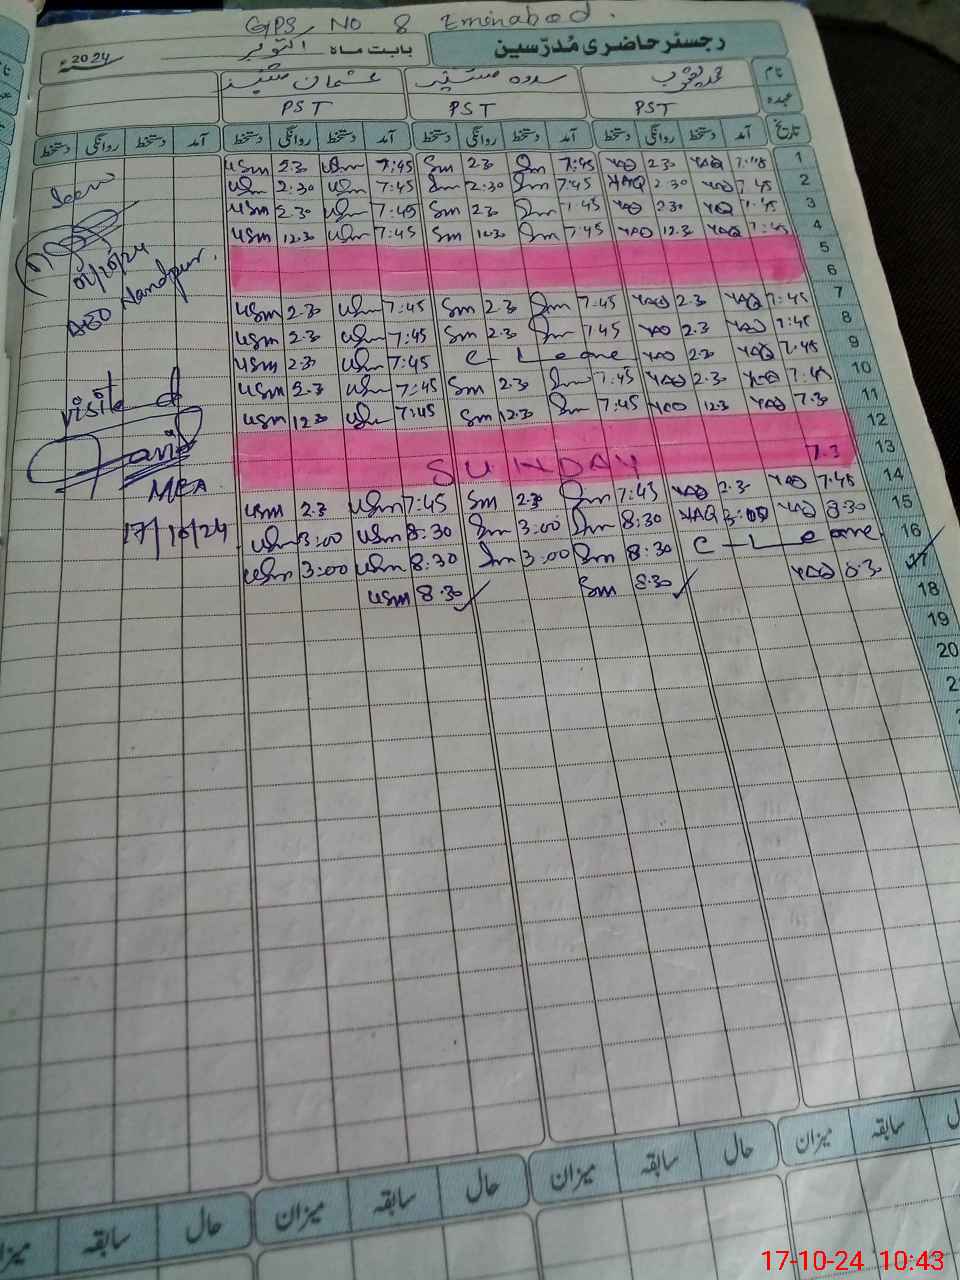 GPS No 8 Eminabad.
رجسٹر حاضری مُدرّسین بابت ماہ اکتوبر 2024
نام محمد یعقوب عثمان
عہدہ PST PST PST
تاریخ آمد دستخط روانگی دستخط آمد دستخط روانگی دستخط آمد دستخط روانگی دستخط آمد دستخط روانگی دستخط
1 YAQ 2.30 7:45 Sm 2.30 Sm 7:45 usm 2.30 usm
2 7:45 YAQ 2.30 YAQ 7:45 Sm 2:30 Sm 7:45 usm 2:30 usm
3 YAQ 2.30 YAQ Sm 2.30 Sm 7:45 usm 2.30 usm
4 7:45 YAQ 12.30 YAQ 7:45 Sm 12.30 Sm 7:45 usm 12.30 usm
5
6
7 7:45 YAQ 2.30 YAQ 7:45 Sm 2.30 Sm 7:45 usm 2.30 usm
8 7:45 YAQ 2.30 YAQ 7:45 Sm 2.30 Sm 7:45 usm 2.30 usm
9 7:45 YAQ 2.30 YAQ C-Leave 7:45 usm 2.30 usm
10 7:45 YAQ 2.30 YAQ 7:45 Sm 2.30 Sm 7:45 usm 2.30 usm
11 7.30 YAQ 12.30 YAQ 7:45 Sm 12.30 Sm 7:45 usm 12.30 usm
12
13 SUNDAY 7.3
14 7:45 YAQ 2.30 YAQ 7:45 Sm 2.30 Sm 7:45 usm 2.30 usm
15 8:30 YAQ 3:00 YAQ 8:30 Sm 3:00 Sm 8:30 usm 3:00 usm
16 C-Leave 8:30 Sm 3:00 Sm 8:30 usm 3:00 usm
17 8.30 YAQ 8.30 Sm 8.30 usm
18
19
20
Seen
01/10/24
AEO Nandpur.
visited
MEA
17/10/24
میزان سابقہ حال میزان سابقہ حال میزان سابقہ حال
17-10-24 10:43